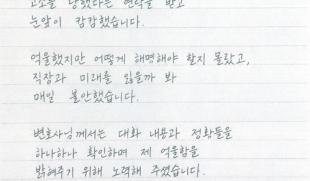 고소를 당했다는 연락을 받고
눈앞이 캄캄했습니다.
억울했지만 어떻게 해명해야 할지 몰랐고,
직장과 미래를 잃을까 봐
매일 불안했습니다.
변호사님께서는 대화 내용과 정황들을
하나하나 확인하며 제 억울함을
밝혀주기 위해 노력해 주셨습니다.